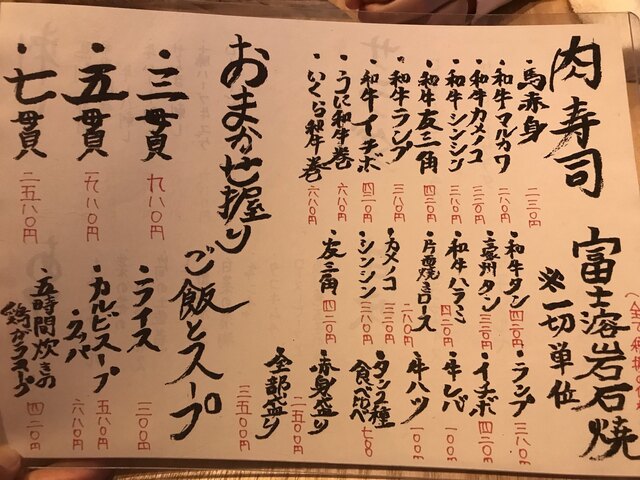 肉寿司
・馬赤身 二三〇円
・和牛マルカワ 二八〇円
・和牛カメノコ 三三〇円
・和牛シンシン 三八〇円
・和牛友三角 四三〇円
・和牛ランプ 三八〇円
・和牛イチボ 四三〇円
・うに和牛巻 六八〇円
・いくら和牛巻 六八〇円
おまかせ握り
・三貫 九八〇円
・五貫 一九八〇円
・七貫 二五八〇円
富士溶岩石焼
※一切単位
・和牛タン 四三〇円
・豪州タン 三三〇円
・和牛ハラミ
・片面焼きロース 二八〇円
・カメノコ 三三〇円
・シンシン 三八〇円
・友三角 四三〇円
・ランプ 三八〇円
・イチボ 四三〇円
・牛レバ 一〇〇円
・牛ハツ 一〇〇円
・タン2種食べ比べ 七〇〇
・赤身盛り 二五〇〇円
・全部盛り 三五〇〇円
ご飯とスープ
・ライス 三〇〇円
・カルビスープ 五八〇円
クッパ 六八〇円
・五時間炊きの
鶏ガラスープ 四三〇円